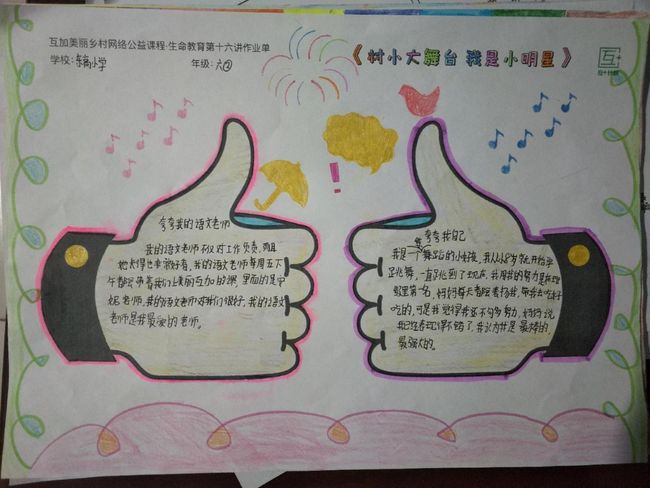 互加美丽乡村网络公益课程·生命教育第十六讲作业单
学校:东高小学
年级:六②
《树小大舞台 我是小明星》
互+计划
夸夸我的语文老师
我的语文老师不仅对工作负责,而且
她长得也非常好看,我的语文老师每周五下
午都会带着我们上美丽互加的课,里面的是
妮老师,我的语文老师对我们很好,我的语文
老师是我最爱的老师。
夸夸我自己
我是一个舞蹈的小女孩,我从小6岁就开始学
跳舞,一直跳到了现在,我用我的努力是在班
级里第一名,妈妈每天都会夸我,带我去吃好
吃的,可是我觉得我还不够努力,妈妈说
我已经表现得不错了,我认为我是最棒的,
最强大的。